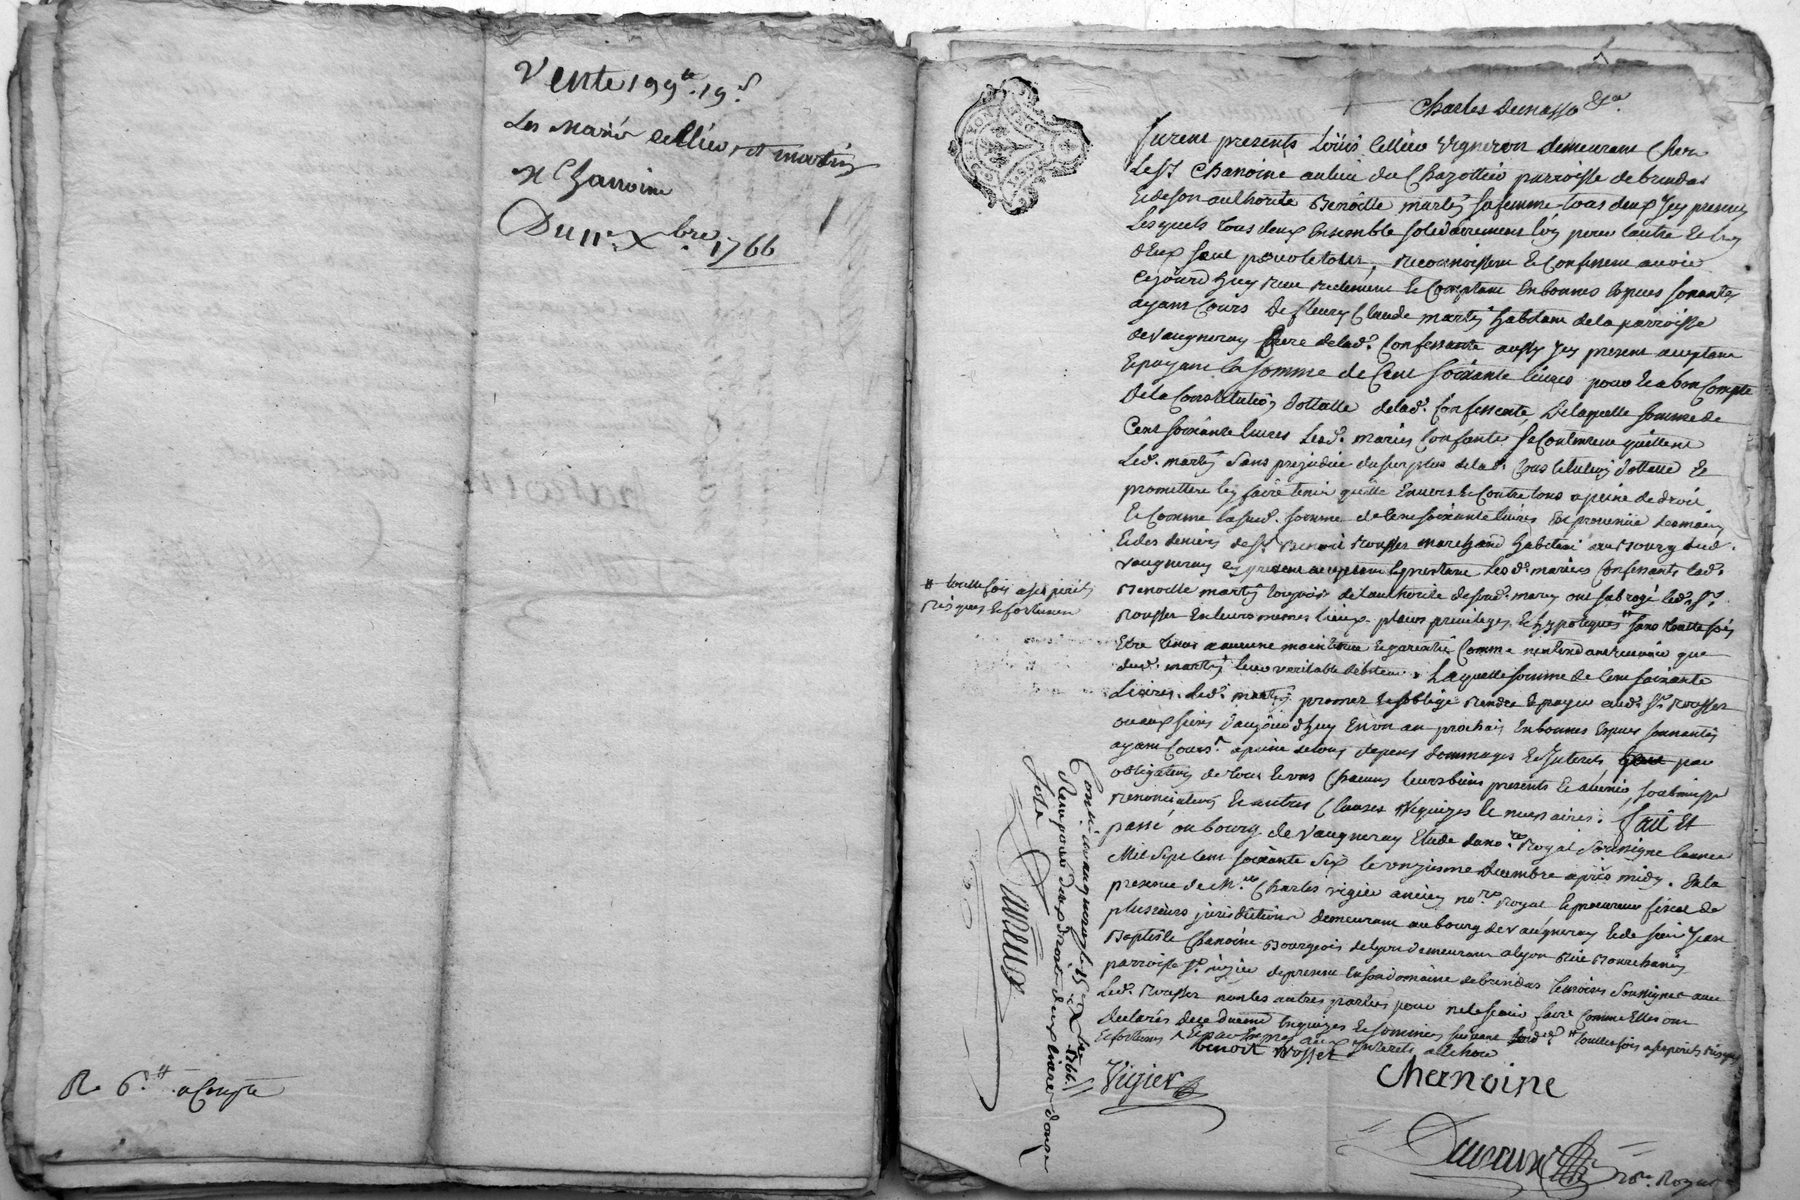 Vente 199.tt 19.s
Les Mariés Cellieu et martin
N Chanoine
Du 11.e Xbre 1766
R. 6.tt a Compte
Charles Demasso &a.
Furent presents Loüis Cellieu Vigneron demeurant Chez
le Sr Chanoine au lieu du Chazottier parroisse de brindas
Et de son authorité Benoitte martin sa femme tous deux Icy presents
Lesquels tous deux Ensemble solidairement l'un pour l'autre Et l'un
d'Eux seul pour le tout, reconnoissent Et Confessent avoir
Cejourd'huy reçu reelement Et Comptant En bonnes Especes sonantes
ayant Cours De fleury Claude martin habitant de la parroisse
de Vaugneray frere de lad.e Confessante aussy Icy present acceptant
Et payant la somme de Cent soixante livres pour Et a bon Compte
De la Constitution dottalle de lad.e Confessente, De laquelle somme de
Cent soixante livres Lesd.s mariés Confants se Contentent quittent
Led.t martin sans prejudice du surplus de lad.e Constitution dottalle Et
promettent l'en faire tenir quitte Envers Et Contre tous a peine de droit
Et Comme lasusd.e somme de Cent soixante livres Est provenüe des mains
Et des deniers de Sr Benoit Rosset marchand habitant au Bourg dud.
Vaugneray Icy present acceptant Lesd.s mariés Confessants lad.e
Benoitte martin toujours de l'authorité de sond. mary ont subrogé led. Sr.
Rosset En leurs memes lieux places privileges Et hypoteques # sans toutte fois
Etre tenus a aucune maintenue Et garentie Comme que
dud. martin leur veritable debiteur, Laquelle somme de Cent soixante
Livres. Led. martin promet Et s'oblige Rendre Et payer aud. Sr. Rosset
ou aux siens d'aujourd'huy En un an prochain En bonnes Especes sonnantes
ayant Cours a peine de tous depens dommages Et Interets par
obligation de tous Et uns Chacuns leurs biens presents Et avenir, soubmission
renonciations Et autres Clauses requizes Et necessaires. Fait Et
passé au bourg de Vaugneray Etude du no.re Royal Soussigné l'année
Mil Sept Cent soixante Six le onziesme decembre après midy. En la
presence de M.re Charles Vigier ancien no.re Royal Et procureur fiscal de
plusieurs jurisdictions demeurant au bourg de Vaugneray Et de Sieur Jean
Baptiste Chanoine Bourgeois de Lyon demeurant a Lyon Rüe Bourchanin
parroisse St. nizier de present En son domaine de brindas temoins Soussignés avec
Led. Rosset non les autres parties pour ne le scavoir faire Comme Elles ont
declarés de ce duement Enquizes Et sommées # touttefois a ses perils risques
Et fortunes
# touttefois a ses perils
risques Et fortunes
Benoit Rosset
Vigier
Chanoine
Duvaux
no.re Royal
Con.lé a Vaugneray le 15.e Xbre 1766.
Reçu pour deux droits deux livres douze
sols
Duvaux